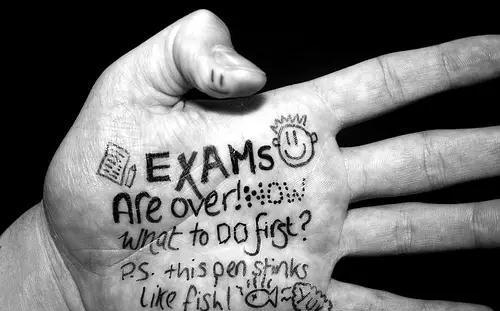 EXAMs
Are over! NOW
what to DO first?
P.S. this pen stinks
like fish!
YUM